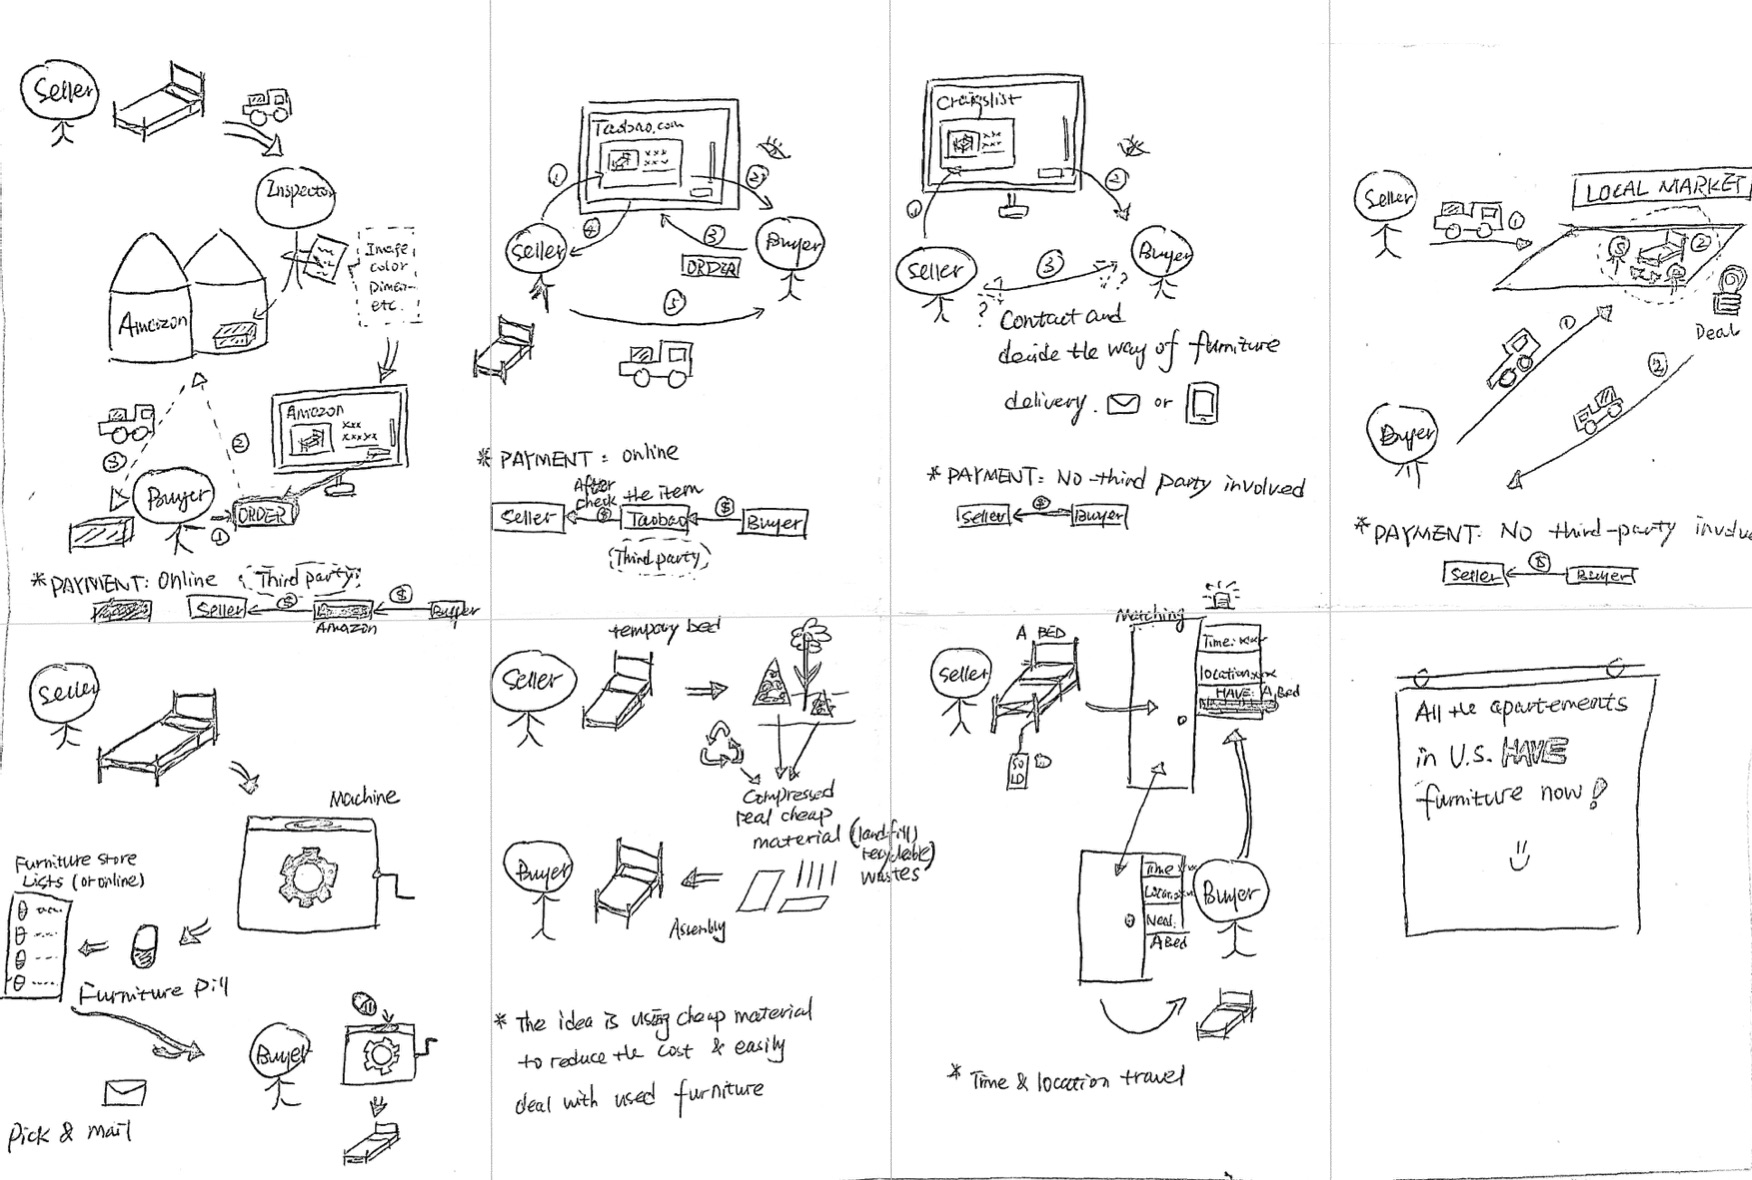 Seller
Inspector
Image
color
Dimen-
etc.
Amazon
Amazon
xxx
xxxyx
③
②
Buyer
ORDER
①
*PAYMENT: Online
Third party
Seller
$
$
Buyer
Amazon
Taobao.com
xxx
xxx
①
②
④
③
Seller
Buyer
ORDER
⑤
* PAYMENT: online
After
check
the item
Seller
$
Taobao
$
Buyer
(Third party)
Craigslist
xxx
xxx
①
②
Seller
③
Buyer
?
?
Contact and
decide the way of furniture
delivery. or
* PAYMENT: NO-third party involved
Seller
$
Buyer
Seller
①
LOCAL MARKET
S
②
B
Deal
①
②
Buyer
*PAYMENT: NO third-party involve
Seller
$
Buyer
Seller
Machine
Furniture store
Lists (or online)
Furniture pill
Buyer
Pick & mail
tempory bed
Seller
Compressed
real cheap
material (landfill,
recyclable)
wastes
Buyer
Assembly
* The idea is using cheap material
to reduce the cost & easily
deal with used furniture
Matching
A BED
Seller
Time: xxx
location:xxx
HAVE: A Bed
SO
LD
Time
Buyer
Need:
A Bed
* Time & location travel
All the apartements
in U.S. HAVE
furniture now!